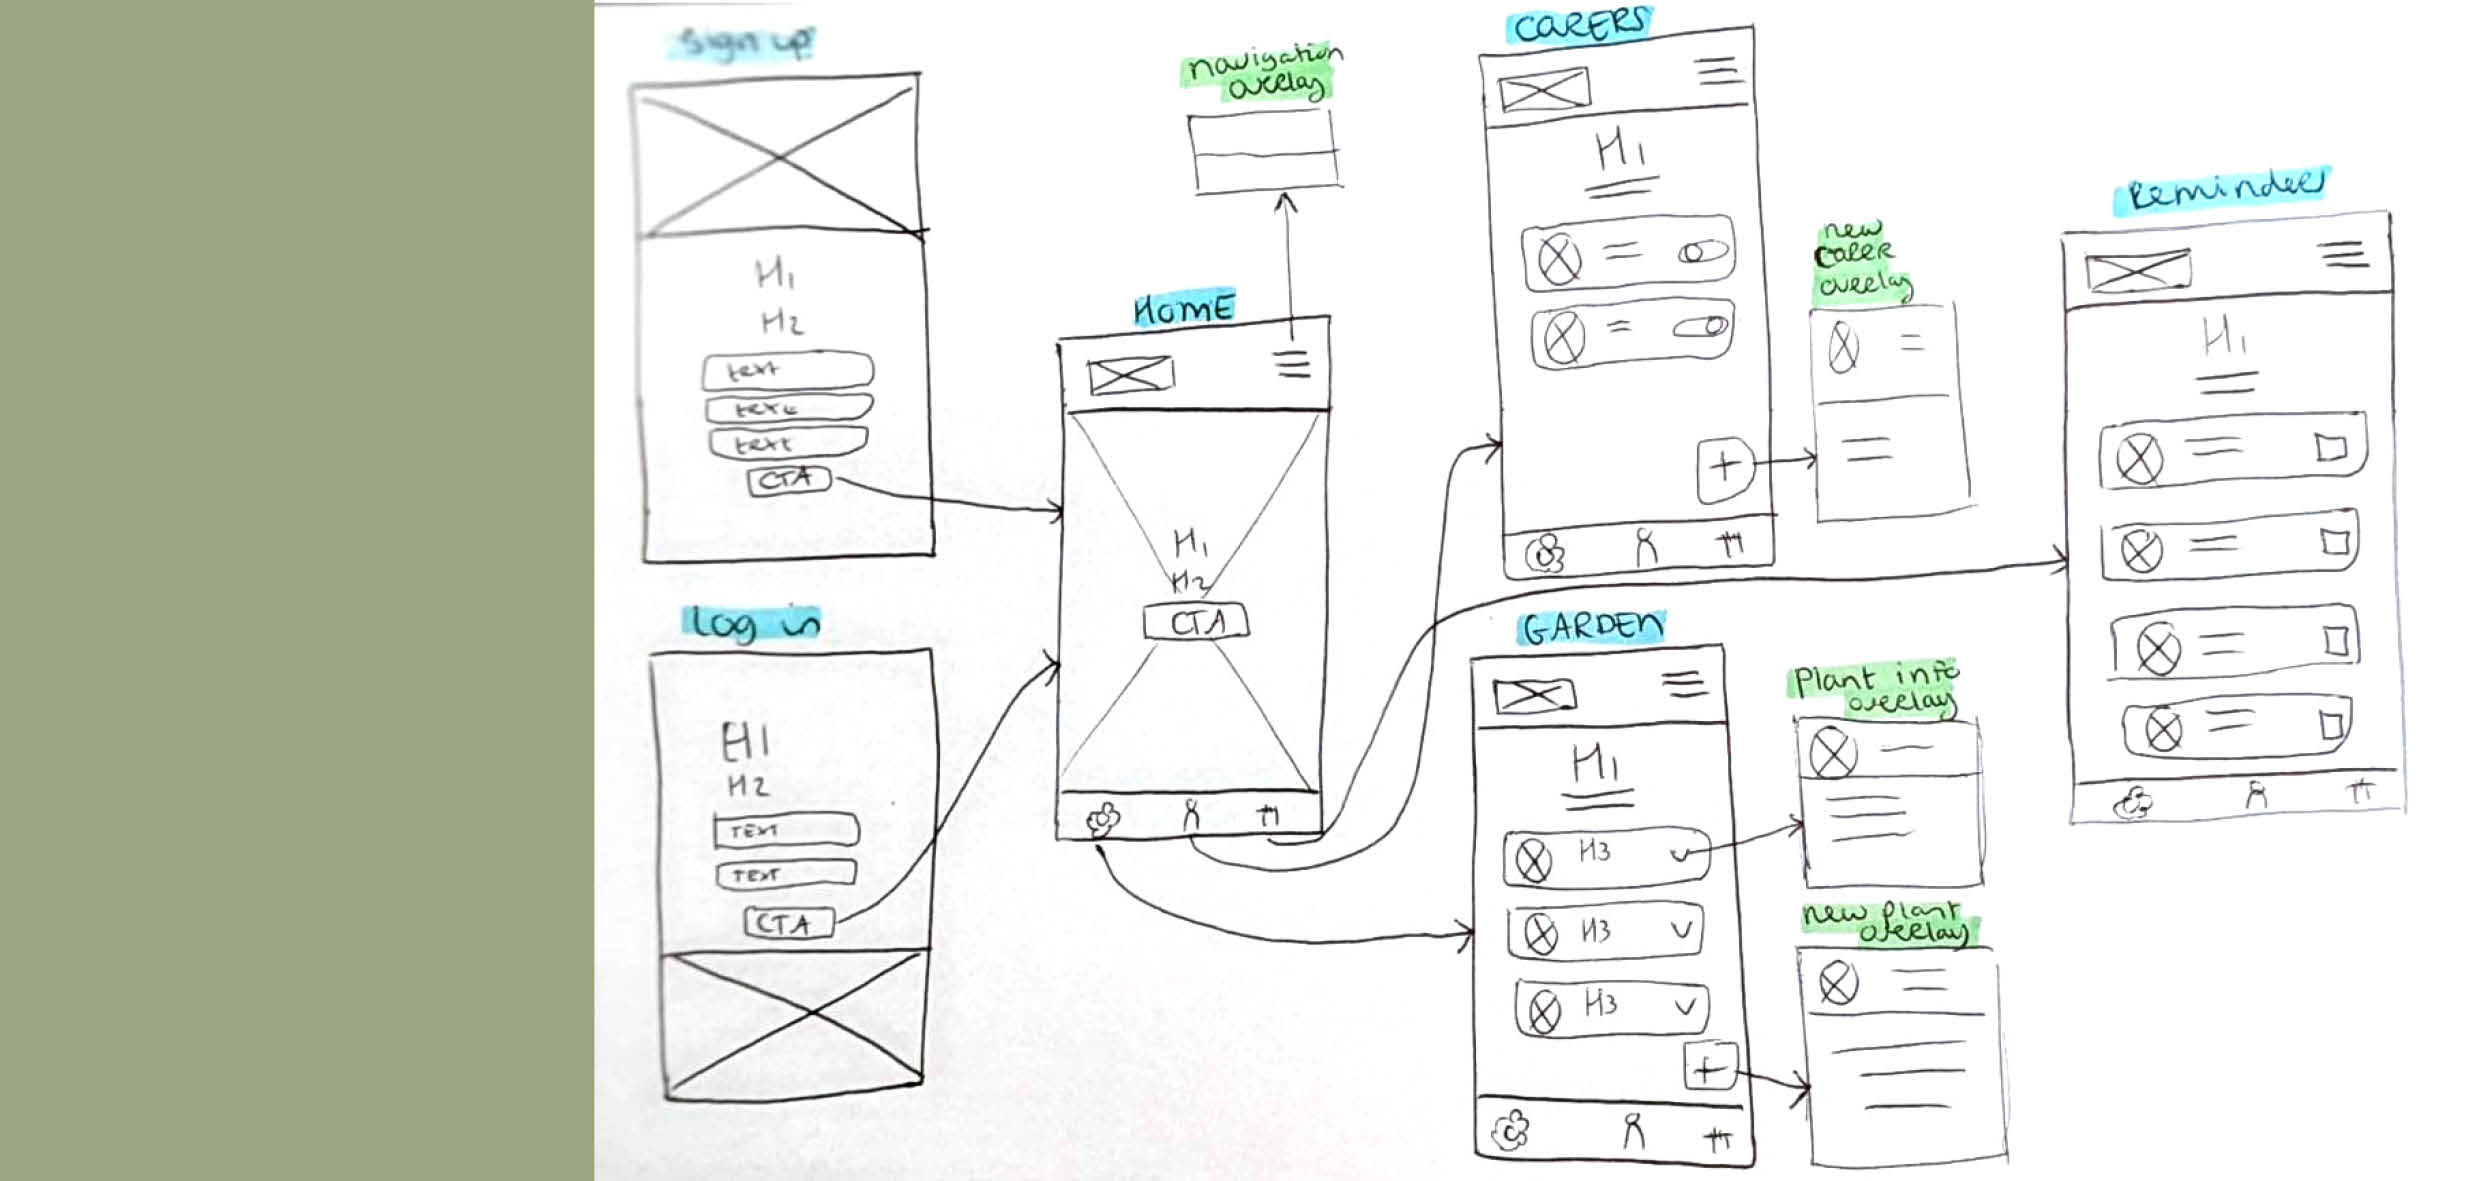 Sign up
H1
H2
text
text
text
CTA
Log in
H1
H2
TEXT
TEXT
CTA
navigation
overlay
HOME
H1
H2
CTA
CARERS
H1
+
new
carer
overlay
GARDEN
H1
H3
H3
H3
+
Plant info
overlay
new plant
overlay
Reminders
H1